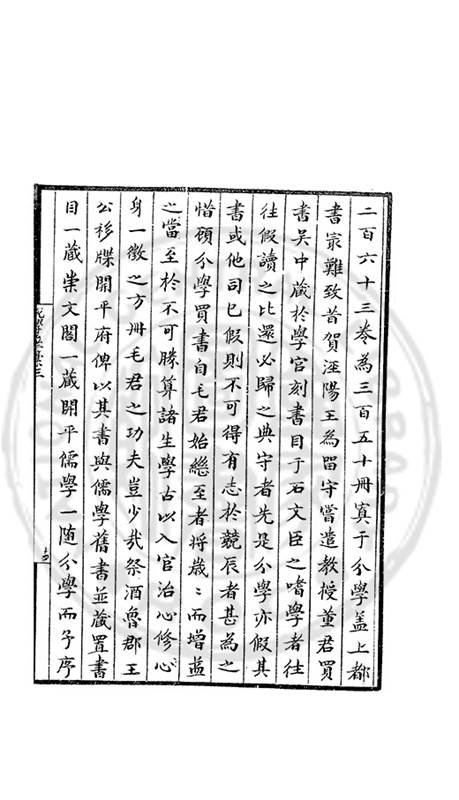 二百六十三卷為三百五十冊寘于分學蓋上都
書㝡難致昔賀涇陽王為畱守嘗遣教授董君買
書吳中藏於學官刻書目于石文臣之嗜學者往
往假讀之比還必歸之典守者先是分學亦假其
書或他司已假則不可得有志於競辰者甚為之
惜頋分學買書自毛君始繼至者將歲〻而增益
之當至於不可勝算諸生學古以入官治心修心
身一徵之方冊毛君之功夫豈少哉祭酒魯郡王
公移牒開平府俾以其書與儒學舊書並藏置書
目一藏崇文閣一藏開平儒學一随分學而予序